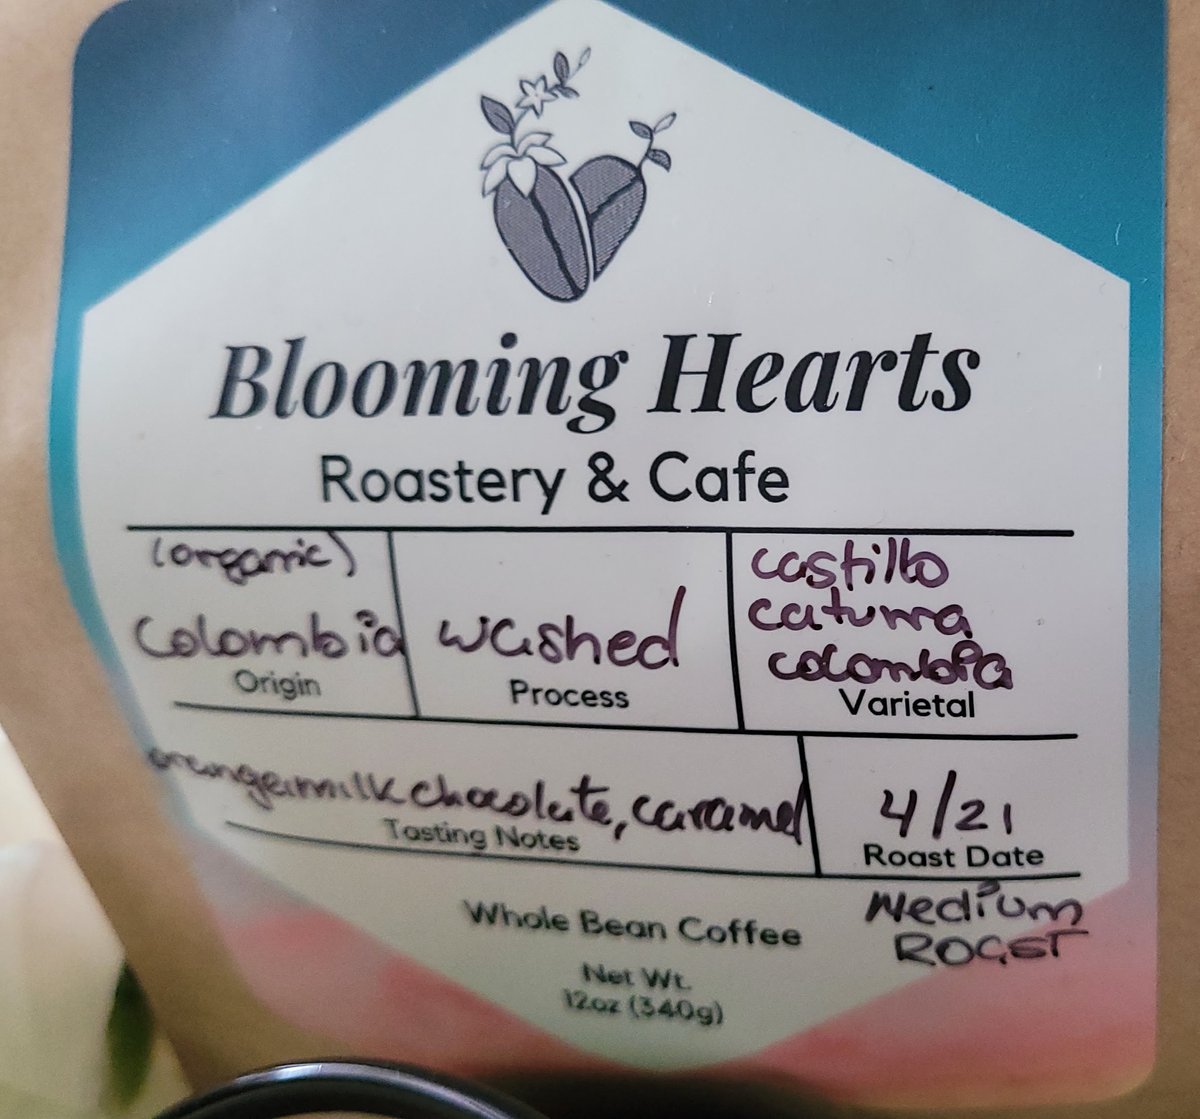 Blooming Hearts
Roastery & Cafe
(organic)
Colombia
Origin
washed
Process
castillo
caturra
colombia
Varietal
orange, milk chocolate, caramel
Tasting Notes
4/21
Roast Date
Medium
Roast
Whole Bean Coffee
Net Wt.
12oz (340g)